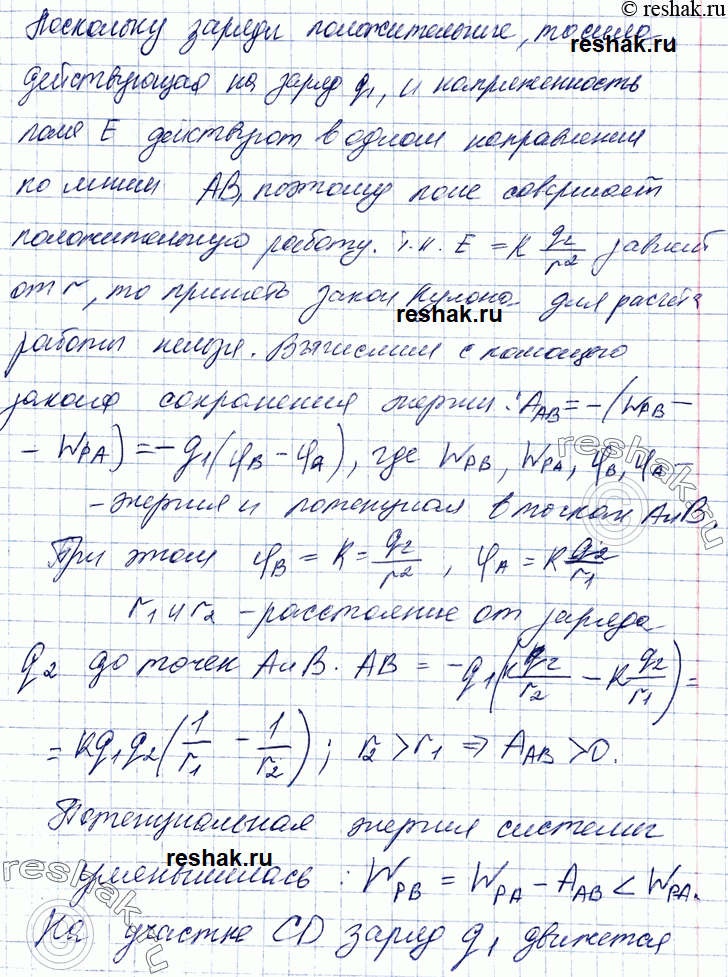 © reshak.ru
Поскольку заряды положительные, то сила
reshak.ru
действующая на заряд q₁, и напряженность
поля E действуют в одном направлении
по линии AB, поэтому поле совершает
положительную работу. Т.к. E = K q₂/r² зависит
от r, то применять закон Кулона для расчета
reshak.ru
работы нельзя. Вычислим с помощью
закона сохранения энергии: A_AB = -(W_PB -
- W_PA) = - q₁(φ_B - φ_A), где W_PB, W_PA, φ_B, φ_A -
- энергия и потенциал в точках A и B.
При этом φ_B = K = q₂/r², φ_A = K q₂/r₁
r₁ и r₂ - расстояние от заряда
q₂ до точек A и B. AB = -q₁(K q₂/r₂ - K q₂/r₁) =
= Kq₁q₂(1/r₁ - 1/r₂); r₂ > r₁ ⇒ A_AB > 0.
Потенциальная энергия системы
reshak.ru
уменьшилась: W_PB = W_PA - A_AB < W_PA.
На участке CD заряд q₁ движется